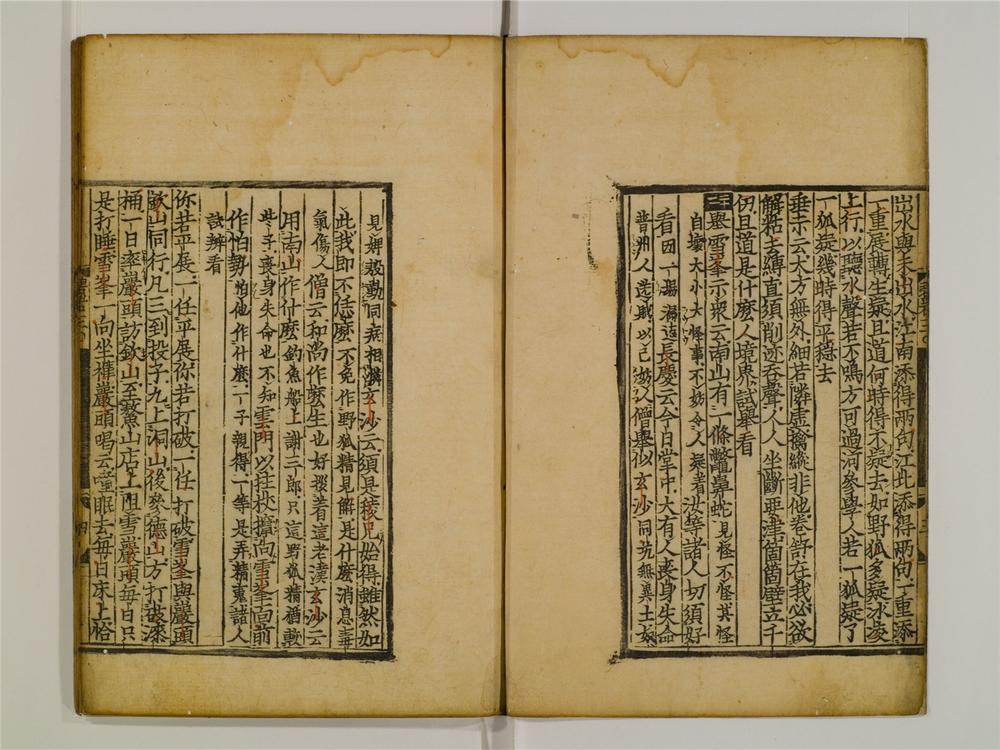 出水與未出水江南添得兩句江北添得兩句一重添
一重展轉生疑且道何時得不疑去如野狐多疑冰凌
上行以聽水聲若不鳴方可過河參學人若一狐疑了
一狐疑幾時得平穩去
垂示云大方無外細若隣虛擒縱非他卷舒在我必欲
解粘去縛直須削迹吞聲人人坐斷要津箇箇壁立千
仞且道是什麼人境界試舉看
二十二 舉雪峯示衆云南山有一條鼈鼻蛇見怪不怪其怪
自壞大小大怪事不妨令人疑著汝等諸人切須好
看㘞一場漏逗長慶云今日堂中大有人喪身失命
普州人送賊以己妨人僧舉似玄沙同坑無異土奴
見婢慇懃同病相憐玄沙云須是稜兄始得雖然如
此我即不恁麼不免作野狐精見解是什麼消息毒
氣傷人僧云和尚作麼生也好拶著這老漢玄沙云
用南山作什麼釣魚船上謝三郎只這野狐精猶較
些子喪身失命也不知雲門以拄杖攛向雪峯面前
作怕勢怕他作什麼一子親得一等是弄精魂諸人
試辨看
你若平展一任平展你若打破一任打破雪峯與巖頭
欽山同行凡三到投子九上洞山後參德山方打破漆
桶一日率巖頭訪欽山至鰲山店上阻雪巖頭每日只
是打睡雪峯一向坐禪巖頭喝云噇眠去每日床上恰